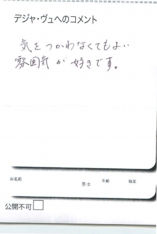 デジャ・ヴュへのコメント
気をつかわなくてもよい
雰囲気が好きです。
お名前 男・女 年齢 職業
公開不可